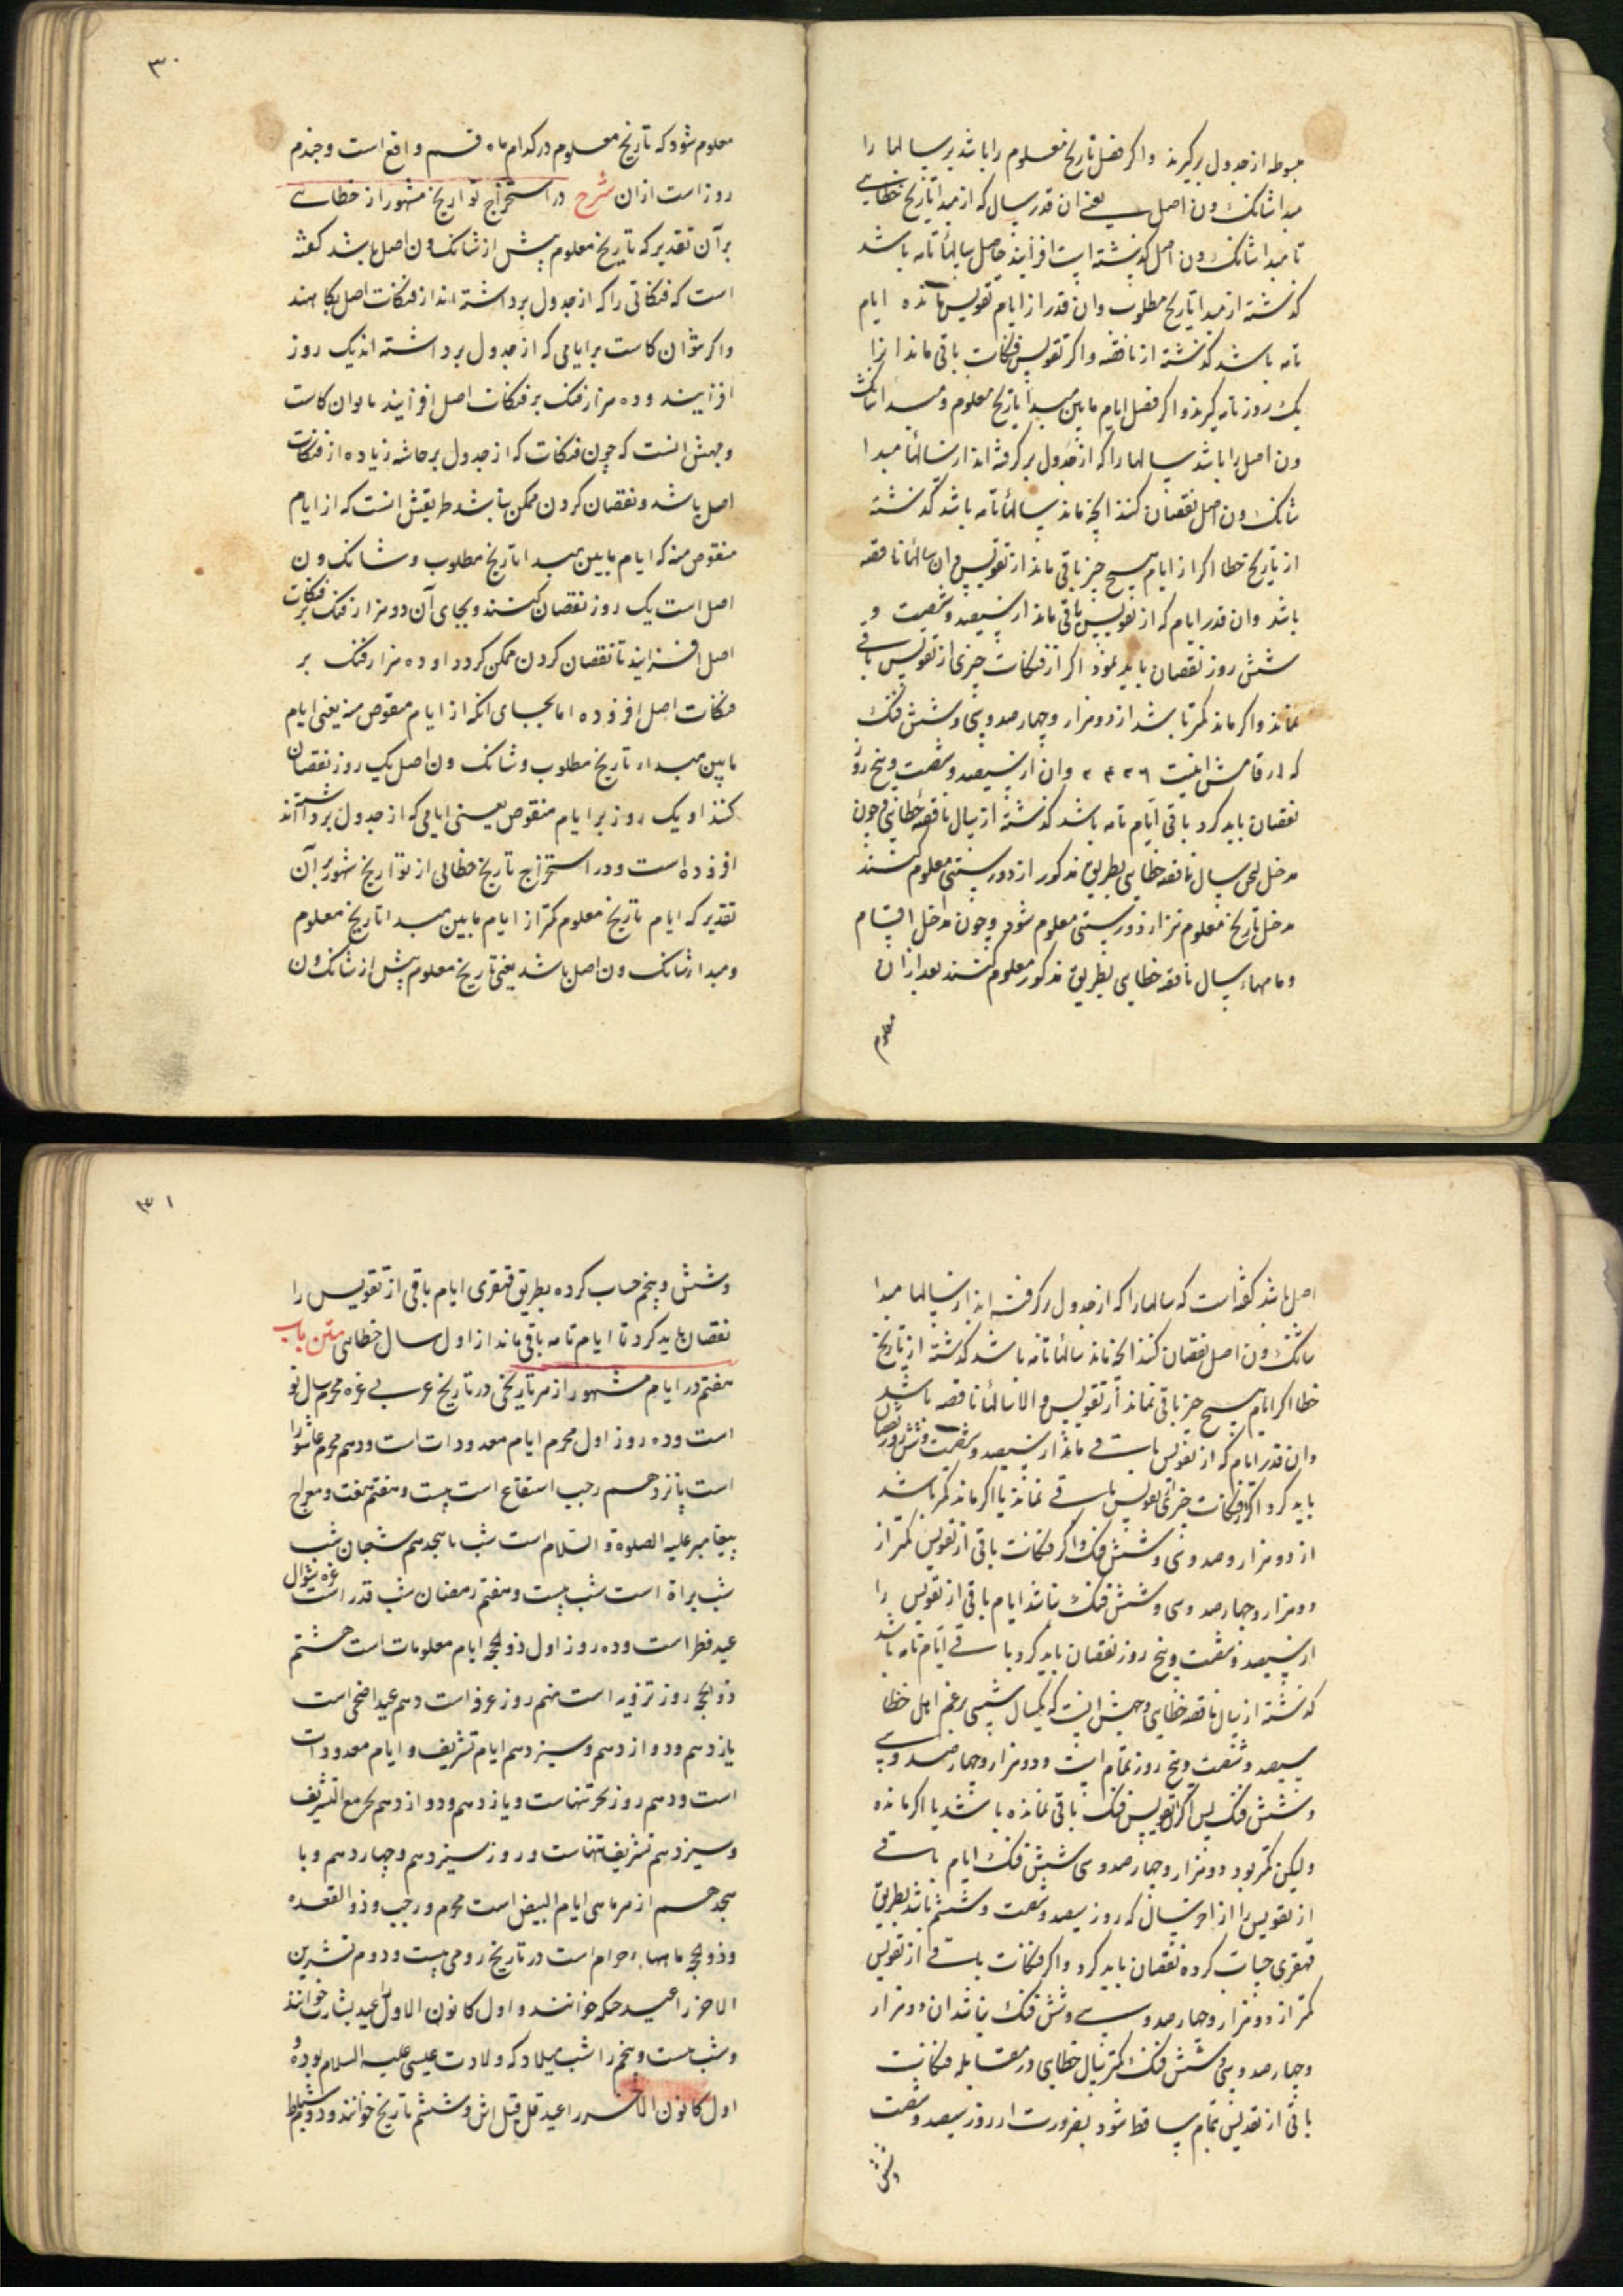 مبسوطه از جدول برگیرند و اگر فضل تاریخ معلوم را باشد بر سالها را
مبدا شانک ون اصل یعنی ان قدر سال که از مبدا تاریخ خطایی
تا مبدا شانک ون اصل گذشته است افزایند حاصل سالهاء تامه باشد
گذشته از مبدا تاریخ مطلوب وان قدر از ایام تقویس مانده ایام
تامه باشد گذشته از ناقصه واگر تقویس فنکات باقی ماند انرا
یک روز تامه گیرند واگر فضل ایام مابین مبدا تاریخ معلوم ومبدا شانک
ون اصل را باشد سالها را که از جدول برگرفته اند از سالهاء مبدا
شانک ون اصل نقصان کنند انچه ماند سالهاء تامه باشد گذشته
از تاریخ خطا اگر از ایام هیچ چیز باقی ماند از تقویس وان سالهاء ناقصه
باشد وان قدر ایام که از تقویس باقی ماند از سیصد وشصت و
شش روز نقصان باید نمود اگر از فنکات چیزی از تقویس باقی
نماند واگر ماند کمتر باشد از دو هزار وچهار صد وسی وشش فنک
که ارقامش اینست ۲۴۳۶ وان از سیصد وشصت وپنج روز
نقصان باید کرد باقی ایام تامه باشد گذشته از سال ناقصه خطایی وچون
مدخل سال ناقصه خطایی بطریق مذکور از دور ستینی معلوم کنند
مدخل تاریخ معلوم نیز از دور ستینی معلوم شود وچون مداخل اقسام
وماههاء سال ناقصه خطایی بطریق مذکور معلوم کنند بعد از ان
معلوم
۳۰
معلوم شود که تاریخ معلوم در کدام ماه قسم واقع است وچندم
روز است از ان شرح در استخراج تواریخ مشهور از خطایی
بر آن تقدیر که تاریخ معلوم پیش از شانک ون اصل باشد گفته
است که فنکاتی را که از جدول برداشته اند از فنکات اصل بکاهند
واگر نتوان کاست بر ایامی که از جدول برداشته اند یک روز
افزایند وده هزار فنک بر فنکات اصل افزایند تا بتوان کاست
وجهش انست که چون فنکات که از جدول برداشته زیاده از فنکات
اصل باشد ونقصان کردن ممکن نباشد طریقش انست که از ایام
منقوص منه که ایام مابین مبدا تاریخ مطلوب وشانک ون
اصل است یک روز نقصان کنند وبجای آن ده هزار فنک بر فنکات
اصل افزایند تا نقصان کردن ممکن گردد او ده هزار فنک بر
فنکات اصل افزوده اما بجای انکه از ایام منقوص منه یعنی ایام
مابین مبداء تاریخ مطلوب وشانک ون اصل یک روز نقصان
کنند او یک روز بر ایام منقوص یعنی ایامی که از جدول برداشته اند
افزوده است ودر استخراج تاریخ خطایی از تواریخ مشهور بر آن
تقدیر که ایام تاریخ معلوم کمتر از ایام مابین مبدا تاریخ معلوم
ومبداء شانک ون اصل باشد یعنی تاریخ معلوم پیش از شانک ون
اصل باشد گفته است که سالها را که از جدول برگرفته اند از سالها مبدا
شانک ون اصل نقصان کنند انچه ماند سالهاء تامه باشد گذشته از تاریخ
خطا اگر ایام هیچ چیز باقی نماند از تقویس والا سالهاء ناقصه باشد
وان قدر ایام که از تقویس باقی ماند از سیصد وشصت وشش روز نقصان
باید کرد اگر از فنکات چیزی تقویس باقی نماند یا اگر ماند کمتر باشد
از دو هزار وصد وسی وشش فنک واگر فنکات باقی از تقویس کمتر از
دو هزار وچهار صد وسی وشش فنک نباشد ایام باقی از تقویس را
از سیصد وشصت وپنج روز نقصان باید کرد باقی ایام تامه باشد
گذشته از سال ناقصه خطایی وجهش اینست که یکسال شمسی بزعم اهل خطا
سیصد وشصت وپنج روز تمام است ودو هزار وچهار صد وسی
وشش فنک پس اگر از تقویس فنک باقی نمانده باشد یا اگر مانده
ولیکن کمتر بود دو هزار وچهار صد وسی شش فنک ایام باقی
از تقویس را از اخر سال که روز سیصد وشصت وششم باشد بطریق
قهقری حساب کرده نقصان باید کرد واگر فنکات باقی از تقویس
کمتر از دو هزار وچهار صد وسی وشش فنک نباشد ان دو هزار
وچهار صد وسی وشش فنک کمتر سال خطایی در مقابله فنکات
باقی از تقویس تمام ساقط شود بضرورت از روز سیصد وشصت
وشش
۳۱
وشش وپنجم حساب کرده بطریق قهقری ایام باقی از تقویس را
نقصان باید کرد تا ایام تامه باقی ماند از اول سال خطایی متن باب
هفتم در ایام مشهور از هر تاریخی در تاریخ عربی غره محرم سال نو
است وده روز اول محرم ایام معدودات است ودهم محرم عاشورا
است پانزدهم رجب استفتاح است بیست وهفتم مبعث ومعراج
پیغامبر علیه الصلوة والسلام است شب پانجدهم شعبان شب
شب براة است شب بیست وهفتم رمضان شب قدر است غره شوال
عید فطر است وده روز اول ذو الحجه ایام معلومات است هشتم
ذو الحجه روز ترویه است نهم روز عرفه است دهم عید اضحی است
یازدهم ودوازدهم وسیزدهم ایام تشریق وایام معدودات
است ودهم روز نحر تنهاست ویازدهم ودوازدهم نحر مع التشریق
وسیزدهم تشریق تنهاست وروز سیزدهم وچهاردهم وپا
نجدهم از هر ماهی ایام البیض است محرم ورجب وذو القعده
وذو الحجه ماههاء حرام است در تاریخ رومی بیست ودوم تشرین
الاخر را عید حکه خوانند واول کانون الاول را عید بشارت خوانند
وشب بیست وپنجم را شب میلاد که ولادت عیسی علیه السلام بوده و
اول کانون الاخر را عید قلنداس وششم تاریخ خوانند ودوم شباط